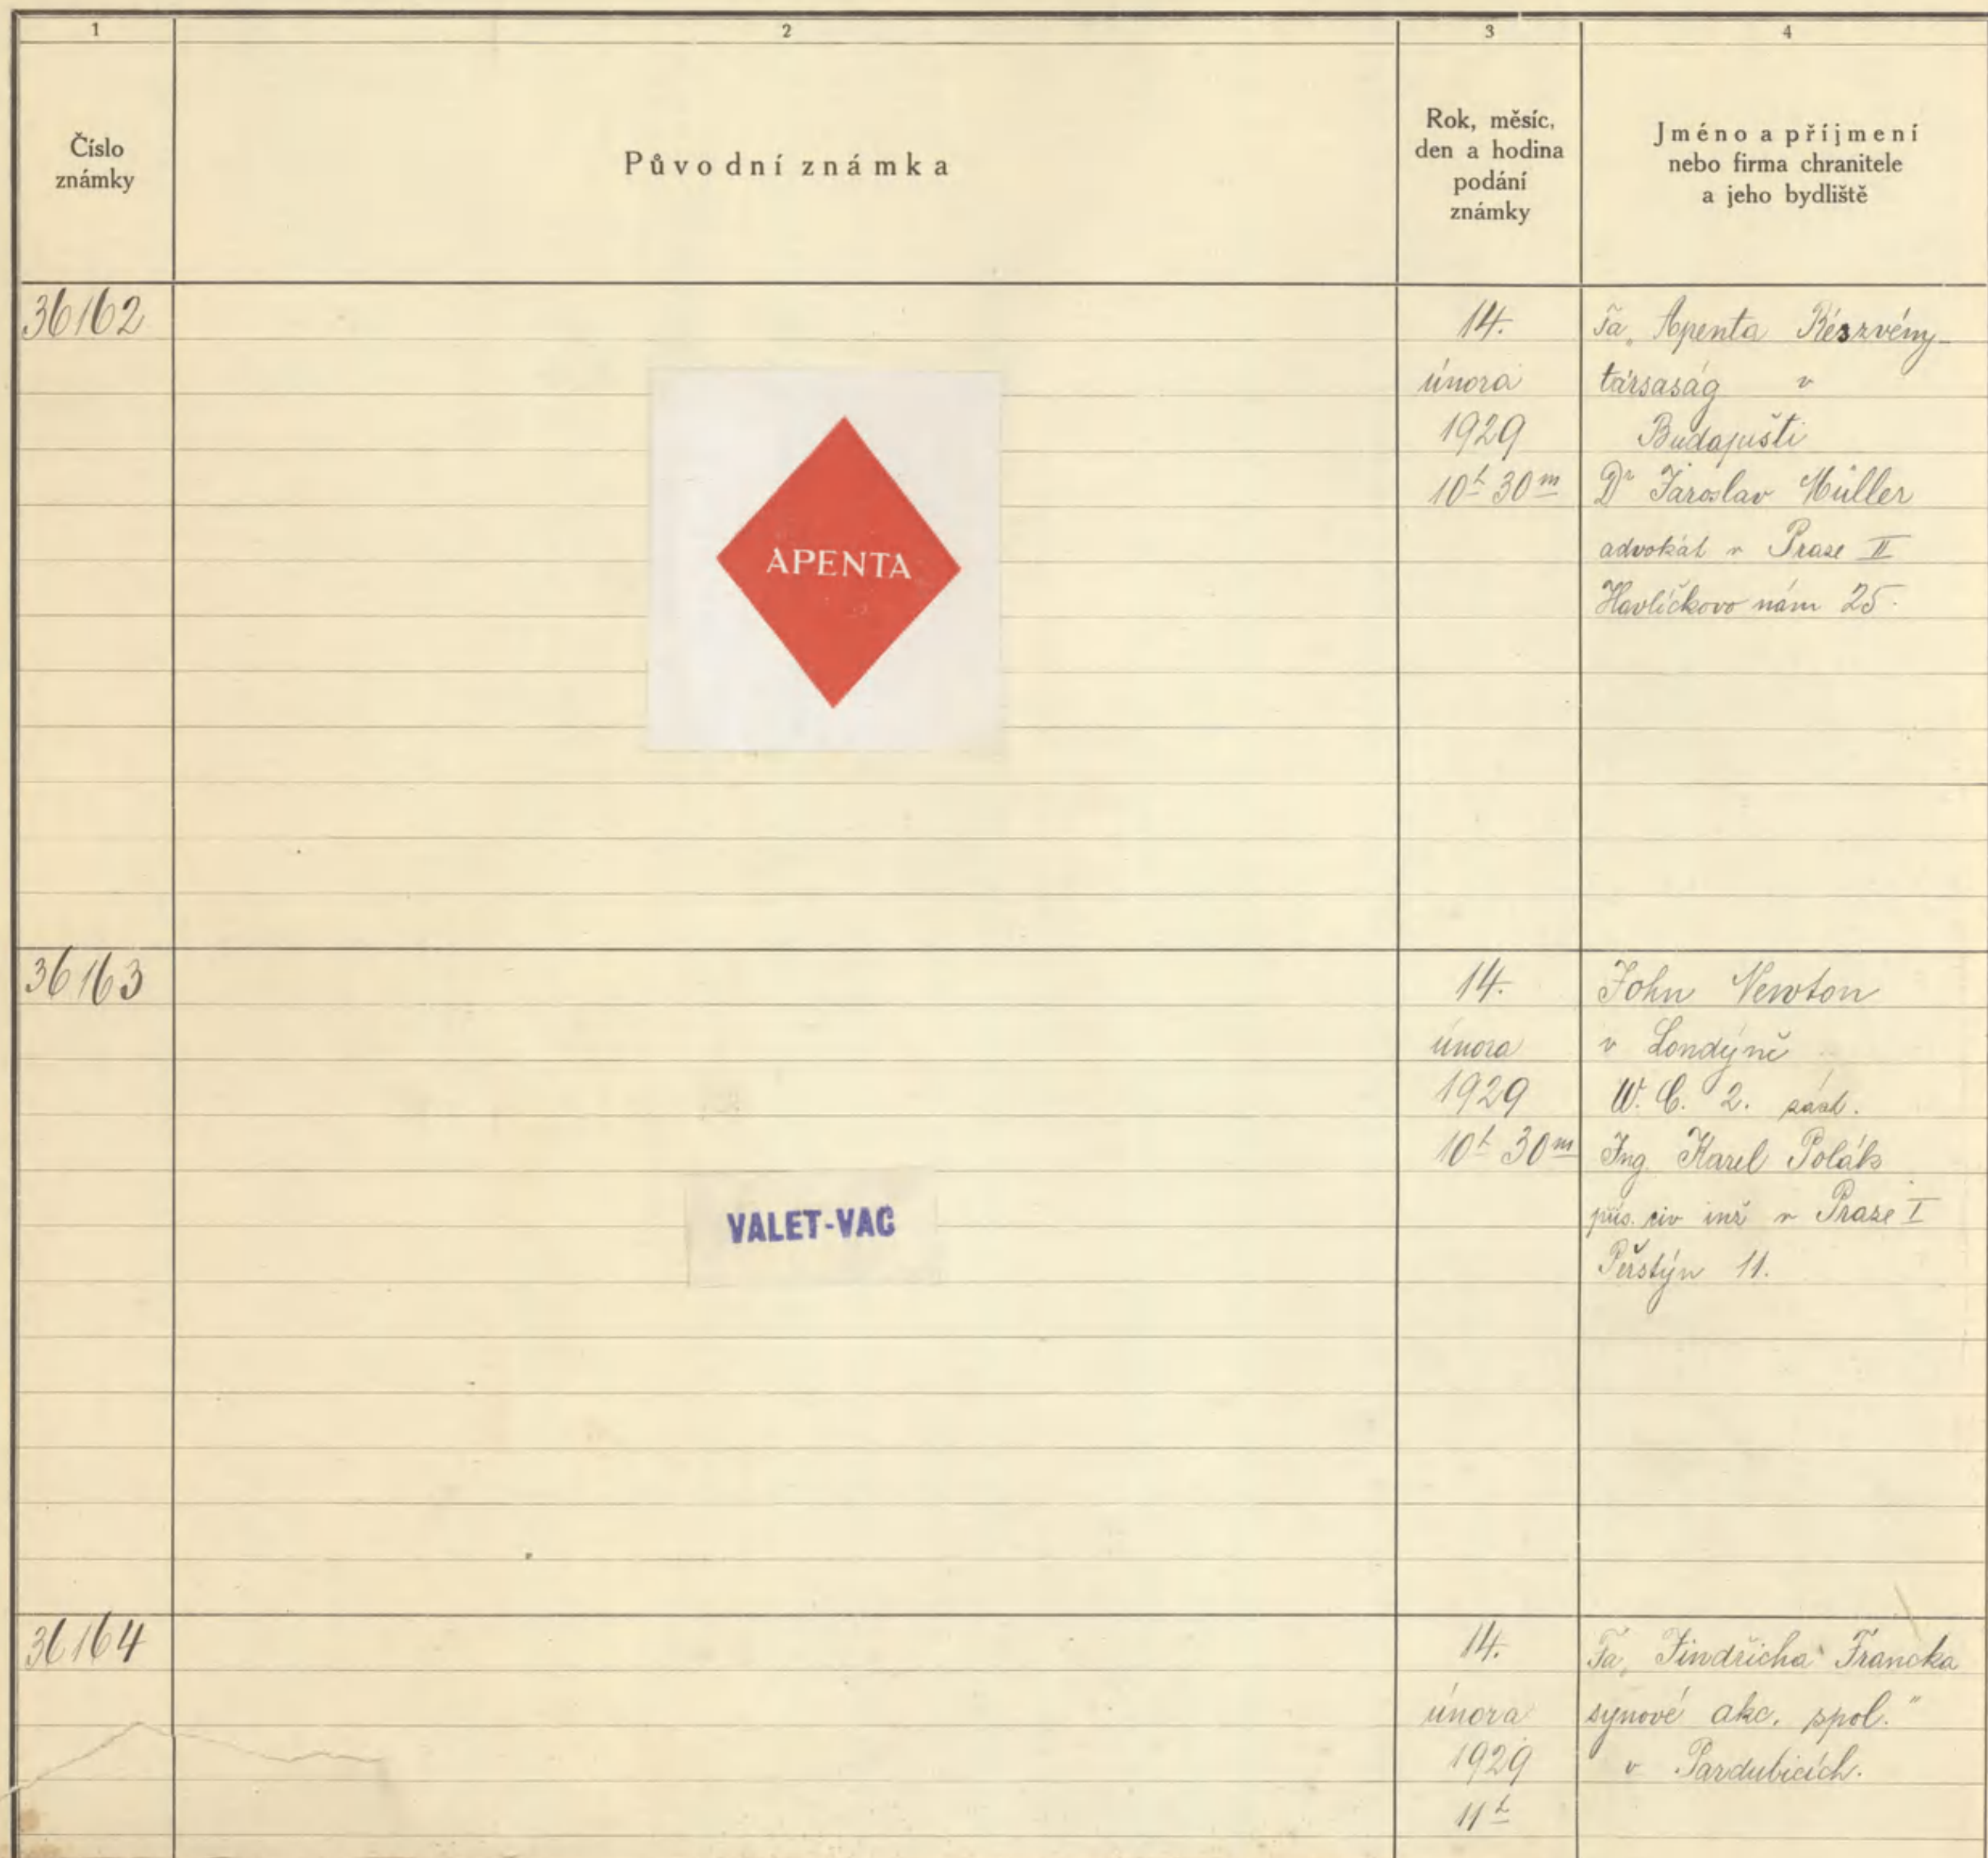 1
2
3
4
Číslo
známky
Původní známka
Rok, měsíc,
den a hodina
podání
známky
Jméno a příjmení
nebo firma chranitele
a jeho bydliště
36162
APENTA
14.
února
1929
10h 30m
Fa „Apenta Részvény-
társaság v
Budapešti
Dr Jaroslav Müller
advokát v Praze II
Havlíčkovo nám 25.
36163
VALET-VAC
14.
února
1929
10h 30m
John Newton
v Londýně
W. C. 2. zást.
Ing. Karel Polák
přís. civ inž v Praze I
Perštýn 11.
36164
14.
února
1929
11h
Fa „Jindřicha Francka
synové akc. spol."
v Pardubicích.